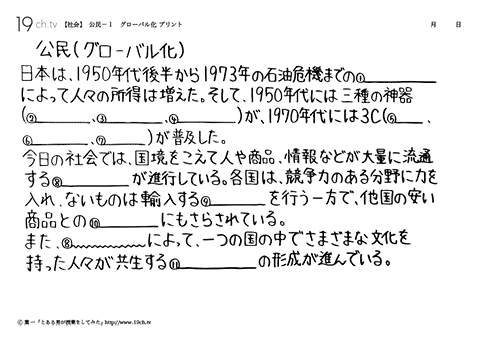 19ch.tv 【社会】 公民－1 グローバル化 プリント 月 日
公民(グローバル化)
日本は、1950年代後半から1973年の石油危機までの①
によって人々の所得は増えた。そして、1950年代には三種の神器
(② 、③ 、④ )が、1970年代には3C(⑤ 、
⑥ 、⑦ )が普及した。
今日の社会では、国境をこえて人や商品、情報などが大量に流通
する⑧ が進行している。各国は、競争力のある分野に力を
入れ、ないものは輸入する⑨ を行う一方で、他国の安い
商品との⑩ にもさらされている。
また、⑧ によって、一つの国の中でさまざまな文化を
持った人々が共生する⑪ の形成が進んでいる。
© 葉一「とある男が授業をしてみた」http://www.19ch.tv